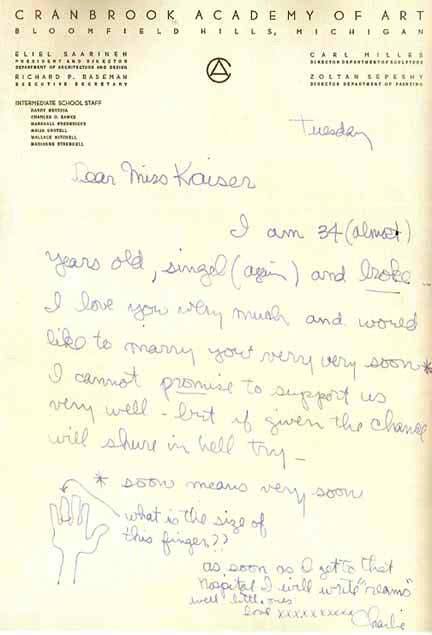 CRANBROOK ACADEMY OF ART
BLOOMFIELD HILLS, MICHIGAN
ELIEL SAARINEN
PRESIDENT AND DIRECTOR
DEPARTMENT OF ARCHITECTURE AND DESIGN
RICHARD P. RASEMAN
EXECUTIVE SECRETARY
CARL MILLES
DIRECTOR DEPARTMENT OF SCULPTURE
ZOLTAN SEPESHY
DIRECTOR DEPARTMENT OF PAINTING
CA
INTERMEDIATE SCHOOL STAFF
HARRY BERTOIA
CHARLES O. EAMES
MARSHALL FREDERICKS
MAIJA GROTELL
WALLACE MITCHELL
MARIANNE STRENGELL
Tuesday
Dear Miss Kaiser
I am 34 (almost)
years old, singel (again) and broke.
I love you very much and would
like to marry you very very soon*
I cannot promise to support us
very well - but if given the chance
will shure in hell try -
* soon means very soon
what is the size of
this finger??
as soon as I get to that
hospital I will write "reams"
well little ones
love xxxxxxxxxx
Charlie